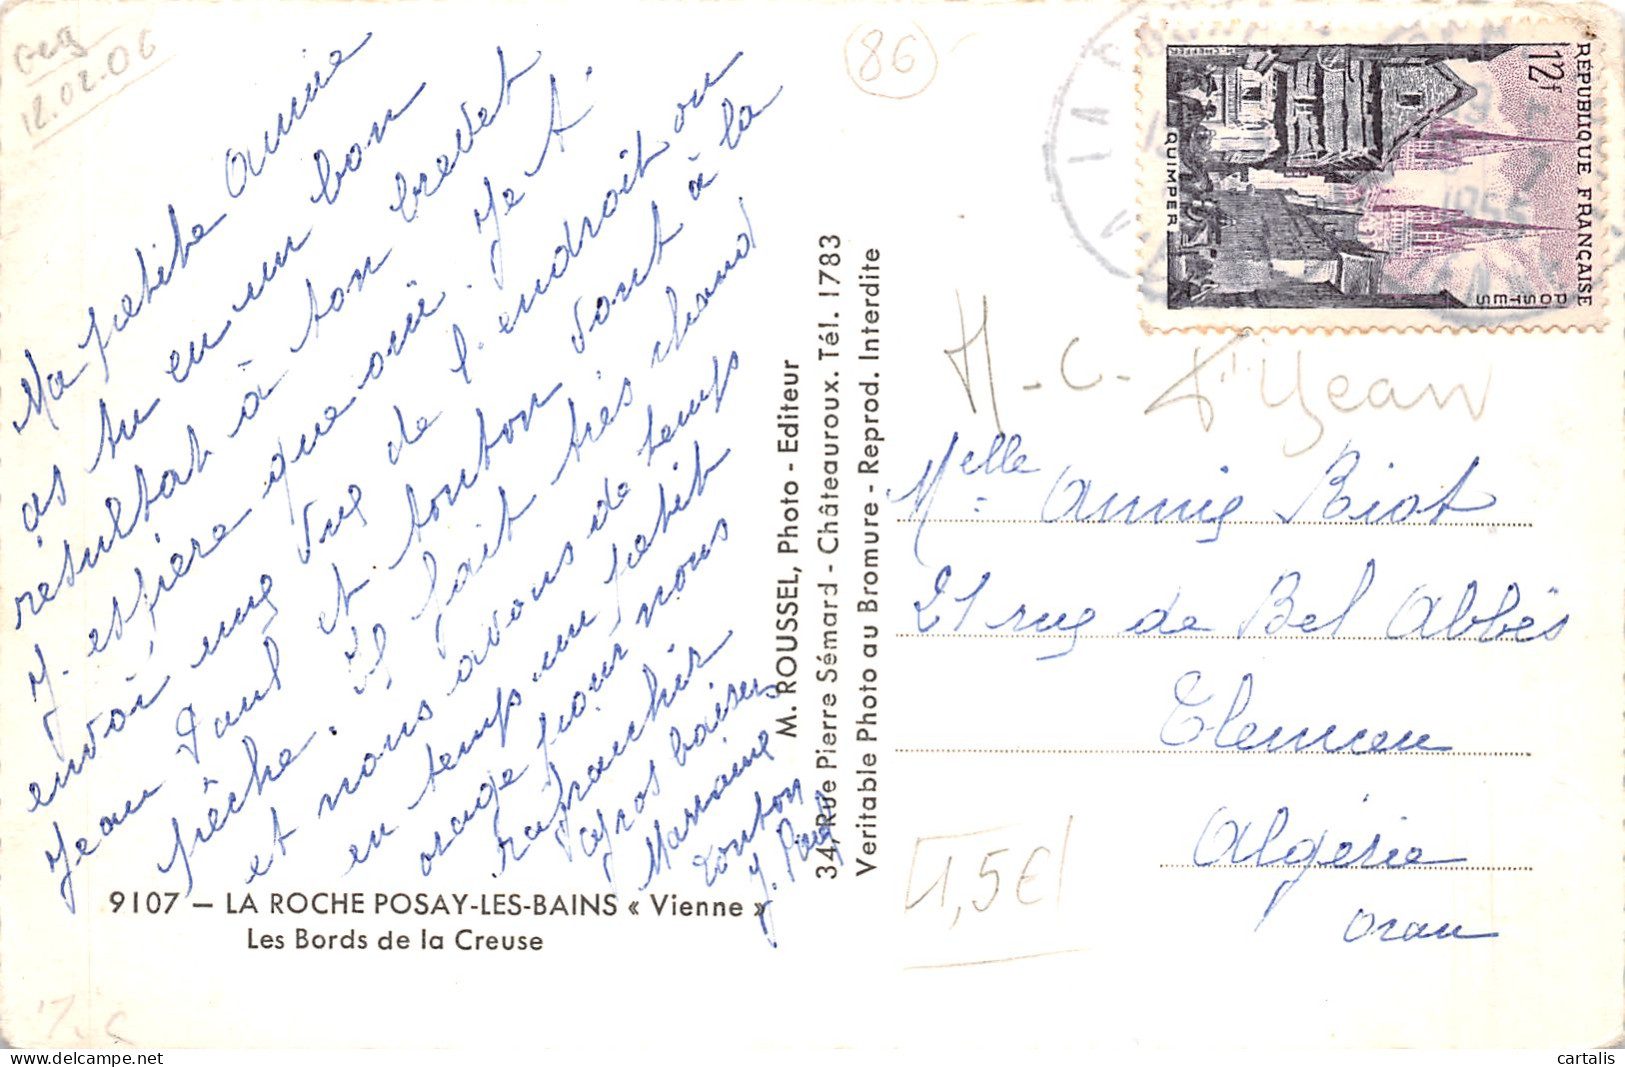 Geg
12.02.06
Ma petite Annie
as tu eu un bon
résultat à ton brevet
J. espère que oui. Je t.
envoi une vue de l. endroit ou
Jean Paul et tonton vont à la
pêche. Il fait très chaud
et nous avons de temps
en temps un petit
orage pour nous
rafraichir
gros baisers
Marraine
tonton
J. Paul
9107 — LA ROCHE POSAY-LES-BAINS « Vienne »
Les Bords de la Creuse
M. ROUSSEL, Photo - Editeur
34, Rue Pierre Sémard - Châteauroux. Tél. 1783
Veritable Photo au Bromure - Reprod. Interdite
86
RÉPUBLIQUE FRANÇAISE
12f
POSTES
QUIMPER
H. CHEFFER
1955
M-C-
Jean
Melle Annie Riot
21 rue de Bel Abbès
Tlemcen
Algérie
Oran
1,5€
cartalis